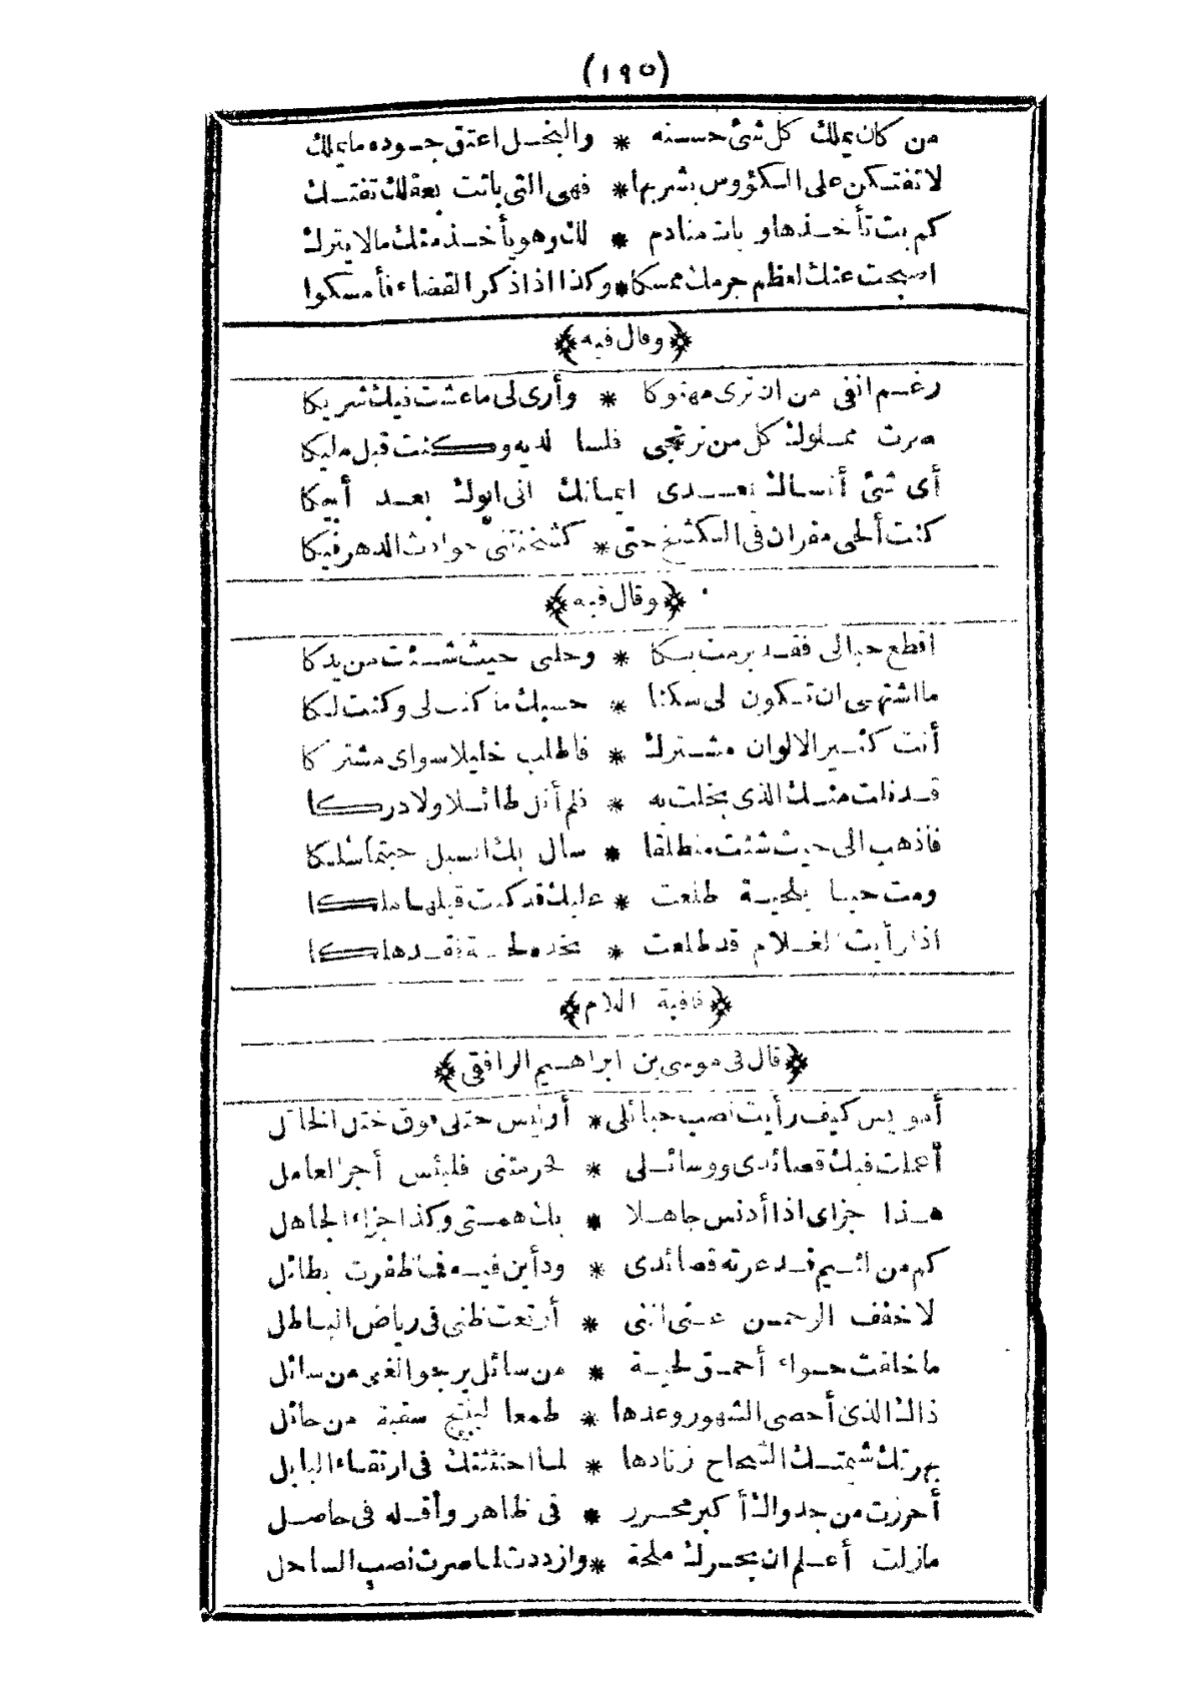 (١٩٥)
من كان يملك كل شئ حسنه * والبخل اعتق جوده ما يملك
لا تفتكن على الكؤوس بشربها * فهى التى باتت بعقلك تفتك
كم بت تأخذها وبات منادم * لك وهو يأخذ منك ما لا يترك
اصبحت عنك لعظم جرمك ممسكا * وكذا اذا ذكر القضاء فأمسكوا
﴿وقال فيه﴾
رغم انفى من ان ترى مهتوكا * وأرى لى ما عشت فيك شريكا
صرت مملوك كل من ترتجى فلسا لديه وكنت قبل مليكا
أى شئ أنساك بعدى ايمانك انى ابوك بعد أبيكا
كنت ألحى مقران فى الكشخ حتى * كشخنتنى حوادث الدهر فيكا
﴿وقال فيه﴾
اقطع حبالى فقد برمت بكا * وخلى حيث شئت من يدكا
ما اشتهى ان تكون لى سكنا * حسبك ما كنت لى وكنت لكا
أنت كثير الالوان مشترك * فاطلب خليلا سواى مشتركا
قد نلت منك الذى بخلت به * فلم أنل طائلا ولا دركا
فاذهب الى حيث شئت منطلقا * سال بك السبل حيثما سلكا
ومت حيا بلحية طلعت * عليك قد كنت قبلها ملكا
اذا رأيت الغلام قد طلعت * بخده لحية فقد هلكا
﴿قافية اللام﴾
﴿قال فى موسى بن ابراهيم الرافقى﴾
أمويس كيف رأيت نصب حبائلى * أوليس ختلى فوق ختل الخاتل
أعملت فيك قصائدى ووسائلى * فحرمتنى فلبئس أجر العامل
هذا جزاى اذا أدنس جاهلا * بك همتى وكذا جزاء الجاهل
كم من لئيم قد عرته قصائدى * ودأبن فيه فما ظفرت بطائل
لا خفف الرحمن عنى اننى * أرتعت ظنى فى رياض الباطل
ما خلفت حواء أحمق لحية * من سائل يرجو الغنى من سائل
ذاك الذى أحصى الشهور وعدها * طمعا لينتج سقبة من حائل
بهرتك شيمتك الشحاح زنادها * لما اختنقتك فى ارتقاء البابل
أحرزت من جدواك أكبر محرز * فى ظاهر وأقله فى حاصل
مازلت أعلم ان بحرك ملحة * وازددت لما صرت نصب الساحل